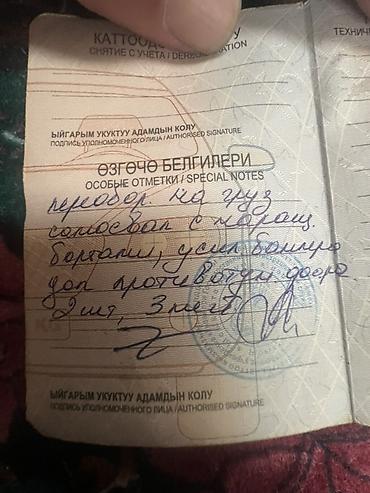 КАТТООДО
СНЯТИЕ С УЧЕТА / DEREGISTRATION
ТЕХНИЧЕ
ЫЙГАРЫМ УКУКТУУ АДАМДЫН КОЛУ
ПОДПИСЬ УПОЛНОМОЧЕННОГО ЛИЦА / AUTHORISED SIGNATURE
ӨЗГӨЧӨ БЕЛГИЛЕРИ
ОСОБЫЕ ОТМЕТКИ / SPECIAL NOTES
переобор на груз
самосвал с наращ.
бортами, усил бампера
доп противотум фара
2шт, 3 мест
ЫЙГАРЫМ УКУКТУУ АДАМДЫН КОЛУ
ПОДПИСЬ УПОЛНОМОЧЕННОГО ЛИЦА / AUTHORISED SIGNATURE